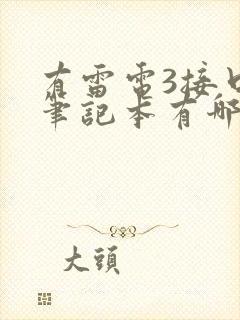 有雷電3接口
筆記本有哪
大頭